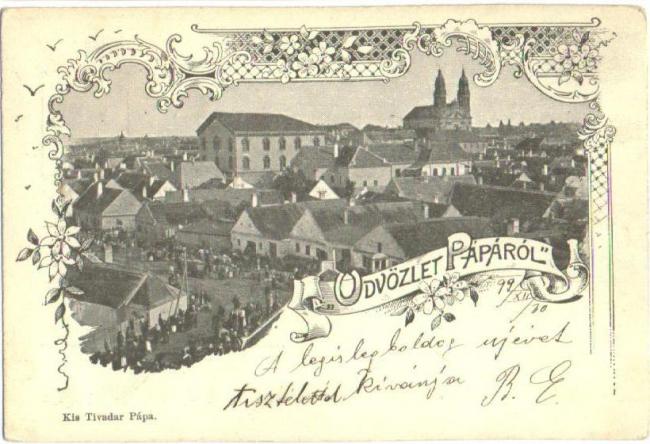 ÜDVÖZLET PÁPÁRÓL"
99
XII
/30
A legislegboldog újévet
tisztelettel kívánja B. E.
Kis Tivadar Pápa.